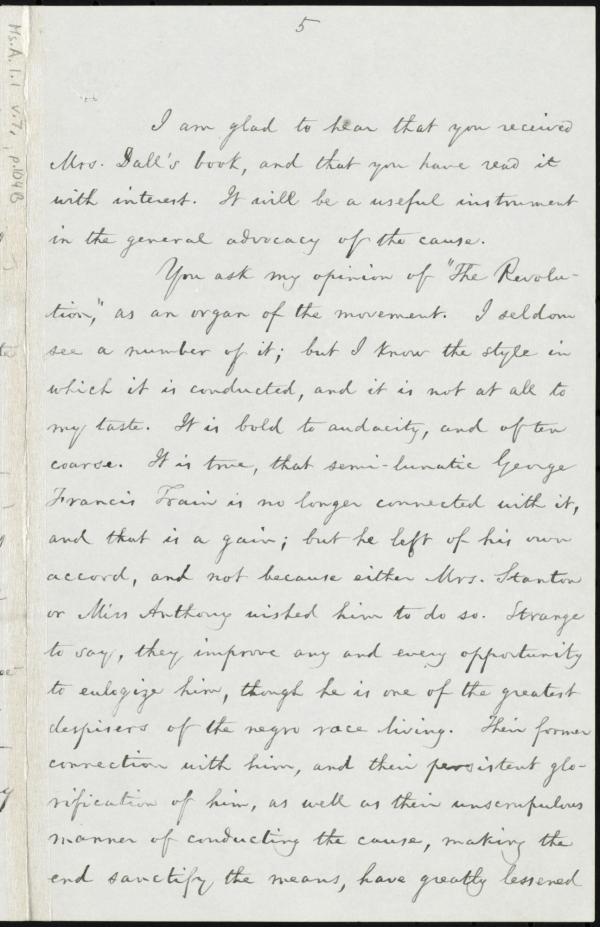 5
I am glad to hear that you received
Mrs. Dall's book, and that you have read it
with interest. It will be a useful instrument
in the general advocacy of the cause.
You ask my opinion of "The Revolu-
tion," as an organ of the movement. I seldom
see a number of it; but I know the style in
which it is conducted, and it is not at all to
my taste. It is bold to audacity, and often
coarse. It is true, that semi-lunatic George
Francis Train is no longer connected with it,
and that is a gain; but he left of his own
accord, and not because either Mrs. Stanton
or Miss Anthony wished him to do so. Strange
to say, they improve any and every opportunity
to eulogize him, though he is one of the greatest
despisers of the negro race living. Their former
connection with him, and their persistent glo-
rification of him, as well as their unscrupulous
manner of conducting the cause, making the
end sanctify the means, have greatly lessened
Ms.A.1.1 v.7, p.104B